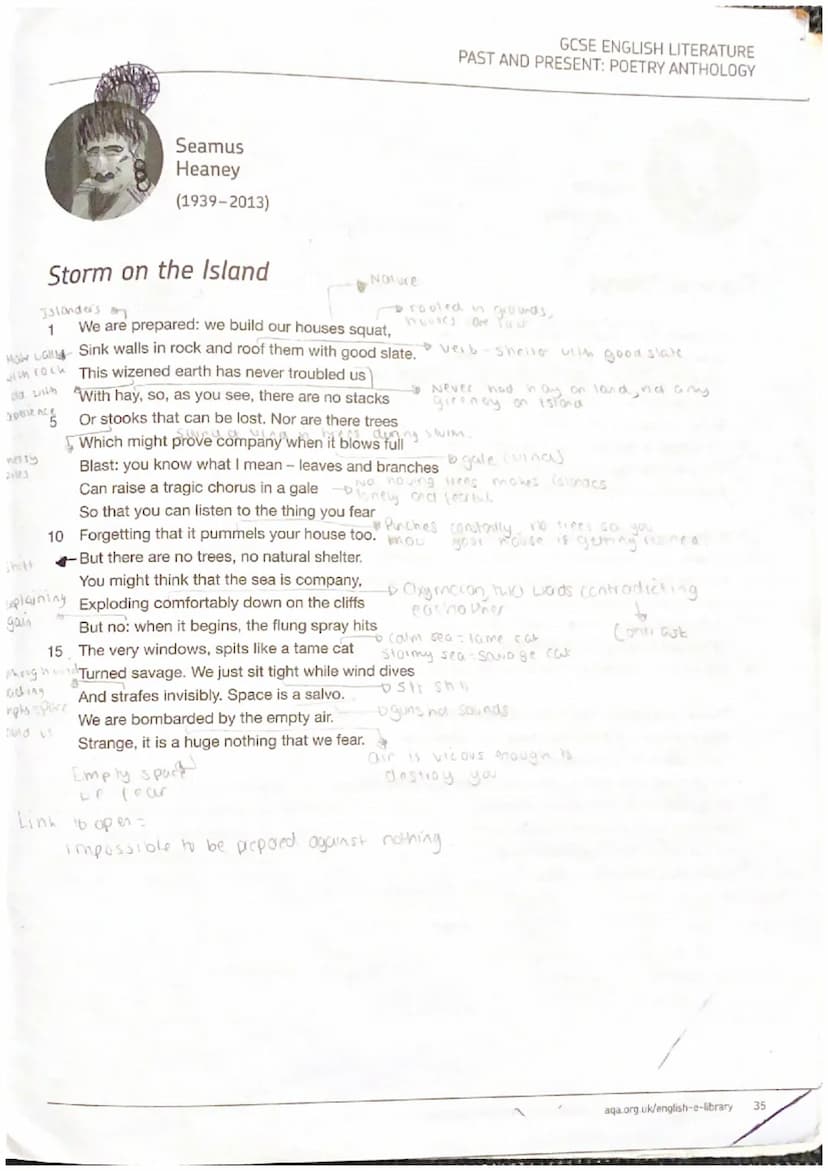 GCSE ENGLISH LITERATURE
PAST AND PRESENT: POETRY ANTHOLOGY
Seamus
Heaney
(1939–2013)
Storm on the Island
Nature
Islanders
rooted in grounds,
houses are
1 We are prepared: we build our houses squat,
Sink walls in rock and roof them with good slate.
verb - shelter with good slate
with rock
This wizened earth has never troubled us
old with
With hay, so, as you see, there are no stacks
Never had hay on land, not any
greenery on island
5 Or stooks that can be lost. Nor are there trees
during storm.
Which might prove company when it blows full
Blast: you know what I mean – leaves and branches
gale (winds)
Can raise a tragic chorus in a gale
No having trees makes islanders
lonely and fearful
So that you can listen to the thing you fear
10 Forgetting that it pummels your house too.
Punches constantly, no trees so you
know your house is getting ruined
But there are no trees, no natural shelter.
You might think that the sea is company,
Oxymoron, two words contradicting
eachother
Contrast
Exploding comfortably down on the cliffs
But no: when it begins, the flung spray hits
calm sea = tame cat
stormy sea - savage cat
15 The very windows, spits like a tame cat
Turned savage. We just sit tight while wind dives
And strafes invisibly. Space is a salvo.
We are bombarded by the empty air.
gunshot sounds
Strange, it is a huge nothing that we fear.
air is vicous enough to
destroy you
Empty space
or fear
Link to open =
impossible to be prepared against nothing
aqa.org.uk/english-e-library 35